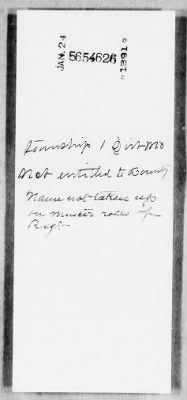 JAN. 24
5654626
1891
Township 1 Dist Mo
Not entitled to Bounty
Name not taken up
on muster rolls of
Regt